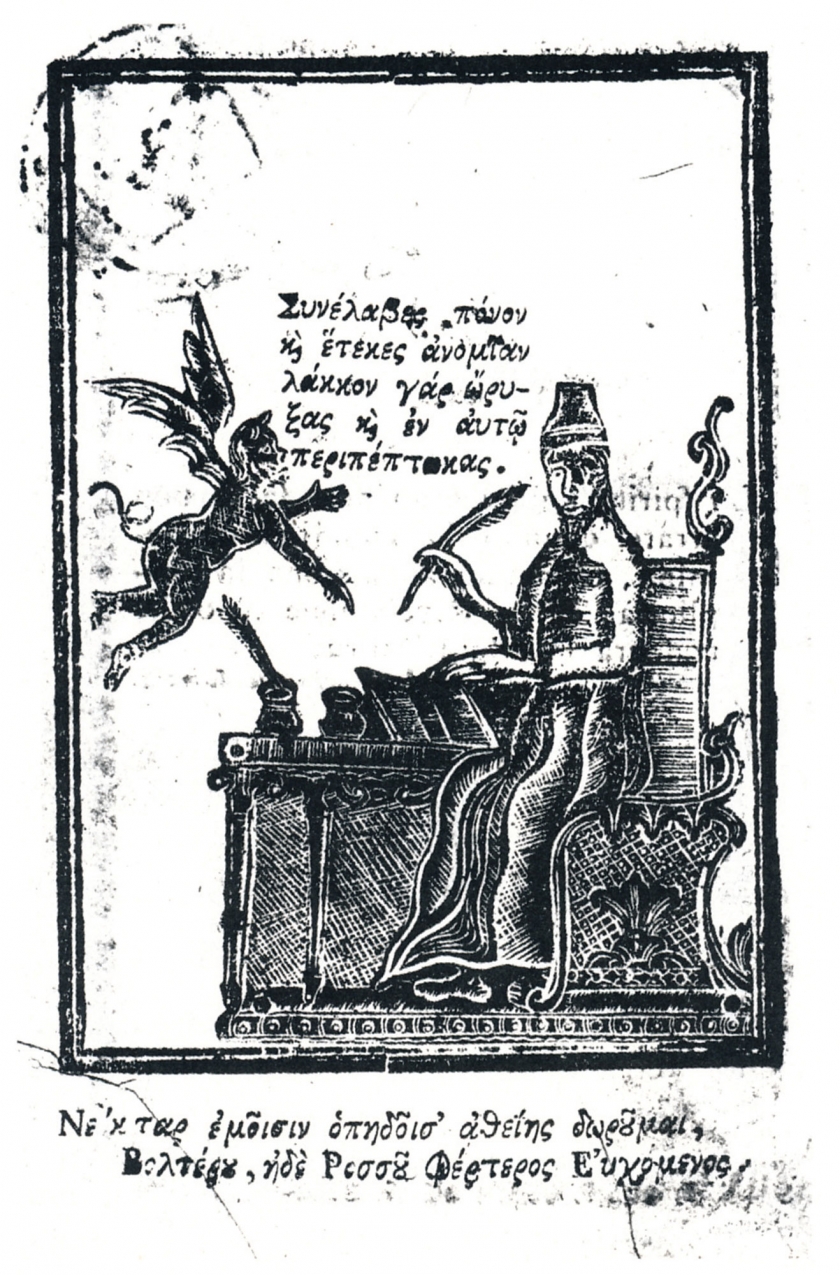 Συνέλαβες πόνον
ϗ̀ ἔτεκες ἀνομίαν
λάκκον γάρ ὤρυ-
ξας ϗ̀ ἐν ἀυτῷ
περιπέπτωκας.
Νέκταρ ἐμοῖσιν ὀπηδοῖσ' ἀθείης δωροῦμαι,
Βολτέρου, ἠδὲ Ροσσοῦ Φέρτερος